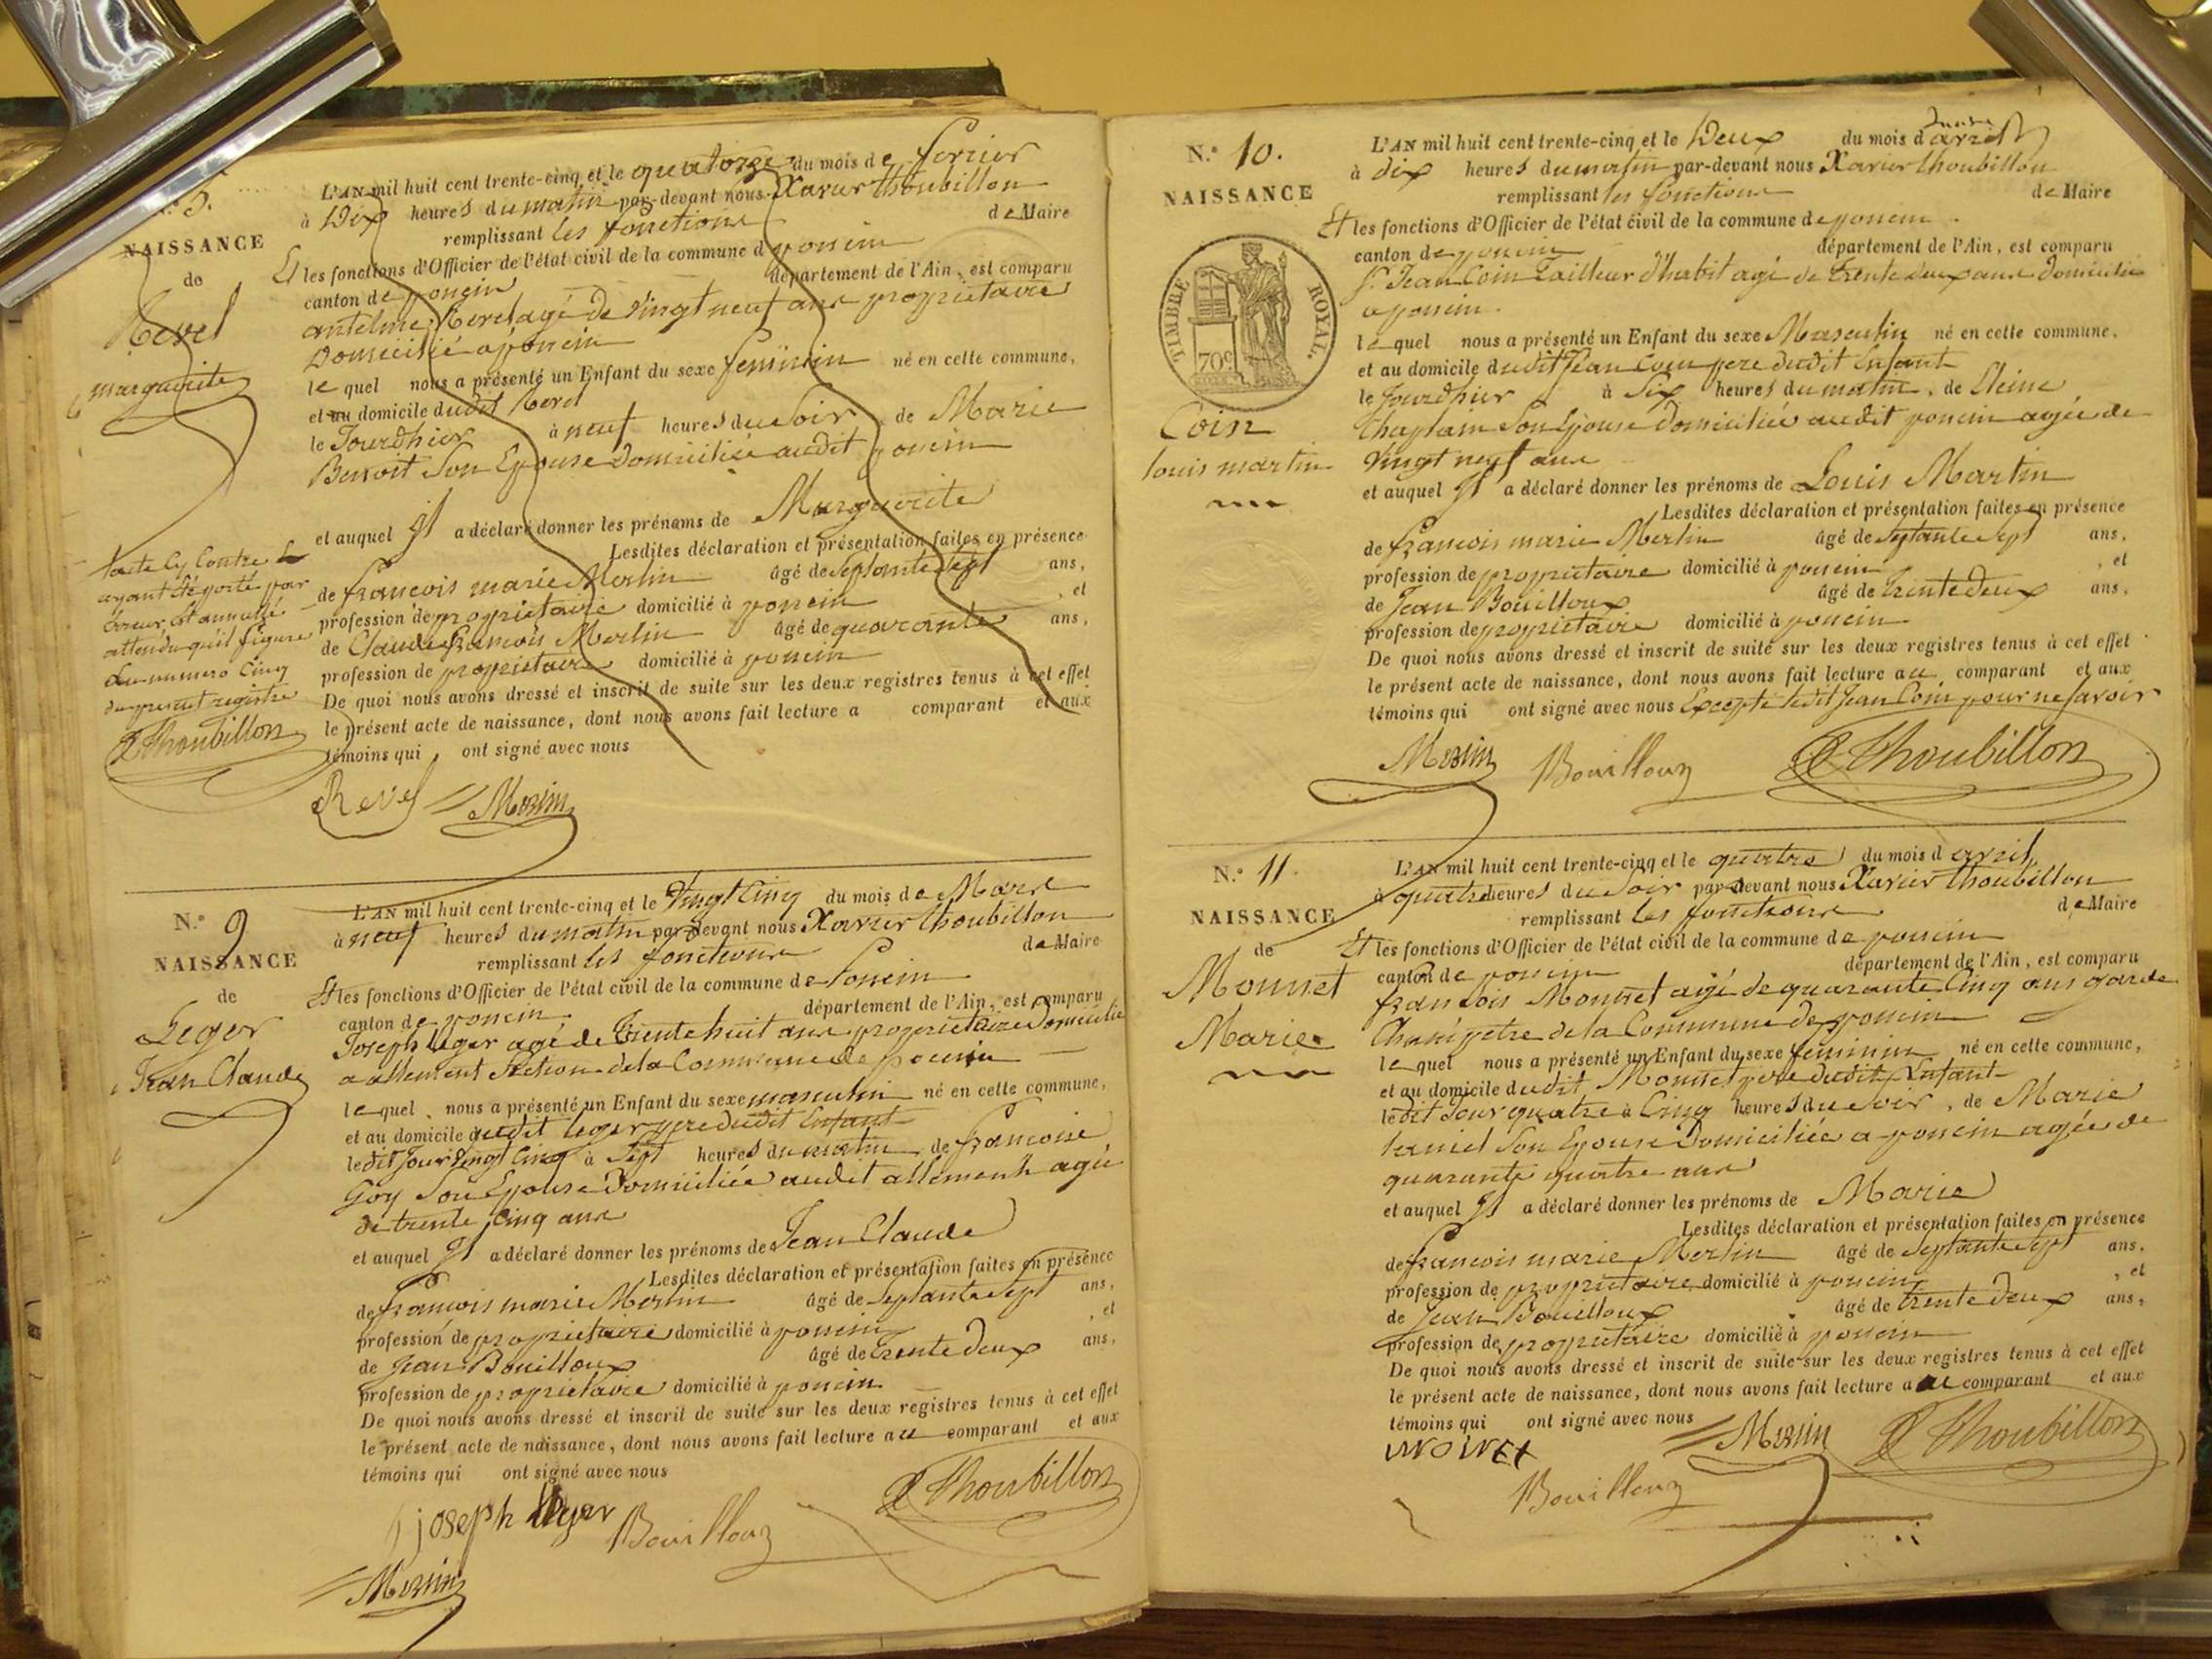 NAISSANCE
de
Revel
marguerite
L'AN mil huit cent trente-cinq et le quatorze du mois de fevrier
à Dix heures du matin par-devant nous Xavier Thoubillon
remplissant les fonctions de Maire
Et les fonctions d'Officier de l'état civil de la commune de poncin
canton de poncin département de l'Ain, est comparu
antelme Revel agé de vingt neuf ans proprietaire
Domicilié a poncin
le quel nous a présenté un Enfant du sexe feminin né en cette commune,
et au domicile dudit Revel
le Jourdhier à neuf heures du soir de Marie
Benoit Son Epouse Domiciliée audit poncin
et auquel Il a déclaré donner les prénoms de Marguerite
Lesdites déclaration et présentation faites en présence
de francois marie Merlin âgé de septante sept ans,
profession de proprietaire domicilié à poncin , et
de Claude francois Merlin âgé de quarante ans,
profession de proprietaire domicilié à poncin
De quoi nous avons dressé et inscrit de suite sur les deux registres tenus à cet effet
le présent acte de naissance, dont nous avons fait lecture a comparant et aux
témoins qui ont signé avec nous
Revel Merlin
lacte cy Contre
ayant été porté par
Erreur, est annullé
attendu qu'il figure
au numero Cinq
du present registre
Thoubillon
N.° 9
NAISSANCE
de
Leger
Jean Claude
L'AN mil huit cent trente-cinq et le Vingt Cinq du mois de Mars
à neuf heures du matin par-devant nous Xavier Thoubillon
remplissant les fonctions de Maire
Et les fonctions d'Officier de l'état civil de la commune de Poncin
canton de poncin département de l'Ain, est comparu
Joseph Leger agé de Trente huit ans proprietaire Domicilié
a allement Section de la Commune de poncin
le quel nous a présenté un Enfant du sexe masculin né en cette commune,
et au domicile dudit Leger pere dudit Enfant
ledit Jour Vingt Cinq à Sept heures du matin de francoise
Goy Son Epouse Domiciliée audit allement agée
de trente Cinq ans
et auquel Il a déclaré donner les prénoms de Jean Claude
Lesdites déclaration et présentation faites en présence
de francois marie Merlin âgé de septante sept ans,
profession de proprietaire domicilié à poncin , et
de Jean Bouilloux âgé de trente Deux ans,
profession de proprietaire domicilié à poncin
De quoi nous avons dressé et inscrit de suite sur les deux registres tenus à cet effet
le présent acte de naissance, dont nous avons fait lecture au comparant et aux
témoins qui ont signé avec nous
joseph leger Bouilloux Thoubillon
Merlin
N.° 10.
NAISSANCE
TIMBRE ROYAL.
70c
Coin
louis martin
L'AN mil huit cent trente-cinq et le Deux du mois d'avril
à dix heures du matin par-devant nous Xavier Thoubillon
remplissant les fonctions de Maire
Et les fonctions d'Officier de l'état civil de la commune de poncin
canton de poncin département de l'Ain, est comparu
Sr. Jean Coin Tailleur d'habit agé de trente deux ans domicilié
a poncin
le quel nous a présenté un Enfant du sexe Masculin né en cette commune.
et au domicile dudit Jean Coin pere dudit Enfant
le Jourdhier à Six heures du matin, de
Chaplain Son Epouse Domiciliée audit poncin agée de
Vingt neuf ans
et auquel Il a déclaré donner les prénoms de Louis Martin
Lesdites déclaration et présentation faites en présence
de francois marie Merlin âgé de septante sept ans.
profession de proprietaire domicilié à poncin , et
de Jean Bouilloux âgé de trente Deux ans.
profession de proprietaire domicilié à poncin
De quoi nous avons dressé et inscrit de suite sur les deux registres tenus à cet effet
le présent acte de naissance, dont nous avons fait lecture au comparant et aux
témoins qui ont signé avec nous Excepté ledit Jean Coin pour ne savoir
Merlin Bouilloux Thoubillon
N.° 11.
NAISSANCE
de
Monnet
Marie
L'AN mil huit cent trente-cinq et le quatre du mois d avril
à quatre heures du Soir par-devant nous Xavier Thoubillon
remplissant les fonctions de Maire
Et les fonctions d'Officier de l'état civil de la commune de poncin
canton de poncin département de l'Ain, est comparu
francois Monnet agé de quarante Cinq ans garde
Champetre de la Commune de poncin
le quel nous a présenté un Enfant du sexe feminin né en cette commune,
et au domicile dudit Monnet pere dudit Enfant
ledit Jour quatre à Cinq heures du Soir, de Marie
Son Epouse Domiciliée a poncin agée de
quarante quatre ans
et auquel Il a déclaré donner les prénoms de Marie
Lesdites déclaration et présentation faites en présence
de francois marie Merlin âgé de Septante Sept ans.
profession de proprietaire domicilié à poncin , et
de Jean Bouilloux âgé de trente Deux ans,
profession de proprietaire domicilié à poncin
De quoi nous avons dressé et inscrit de suite sur les deux registres tenus à cet effet
le présent acte de naissance, dont nous avons fait lecture au comparant et aux
témoins qui ont signé avec nous
Monnet Merlin Thoubillon
Bouilloux